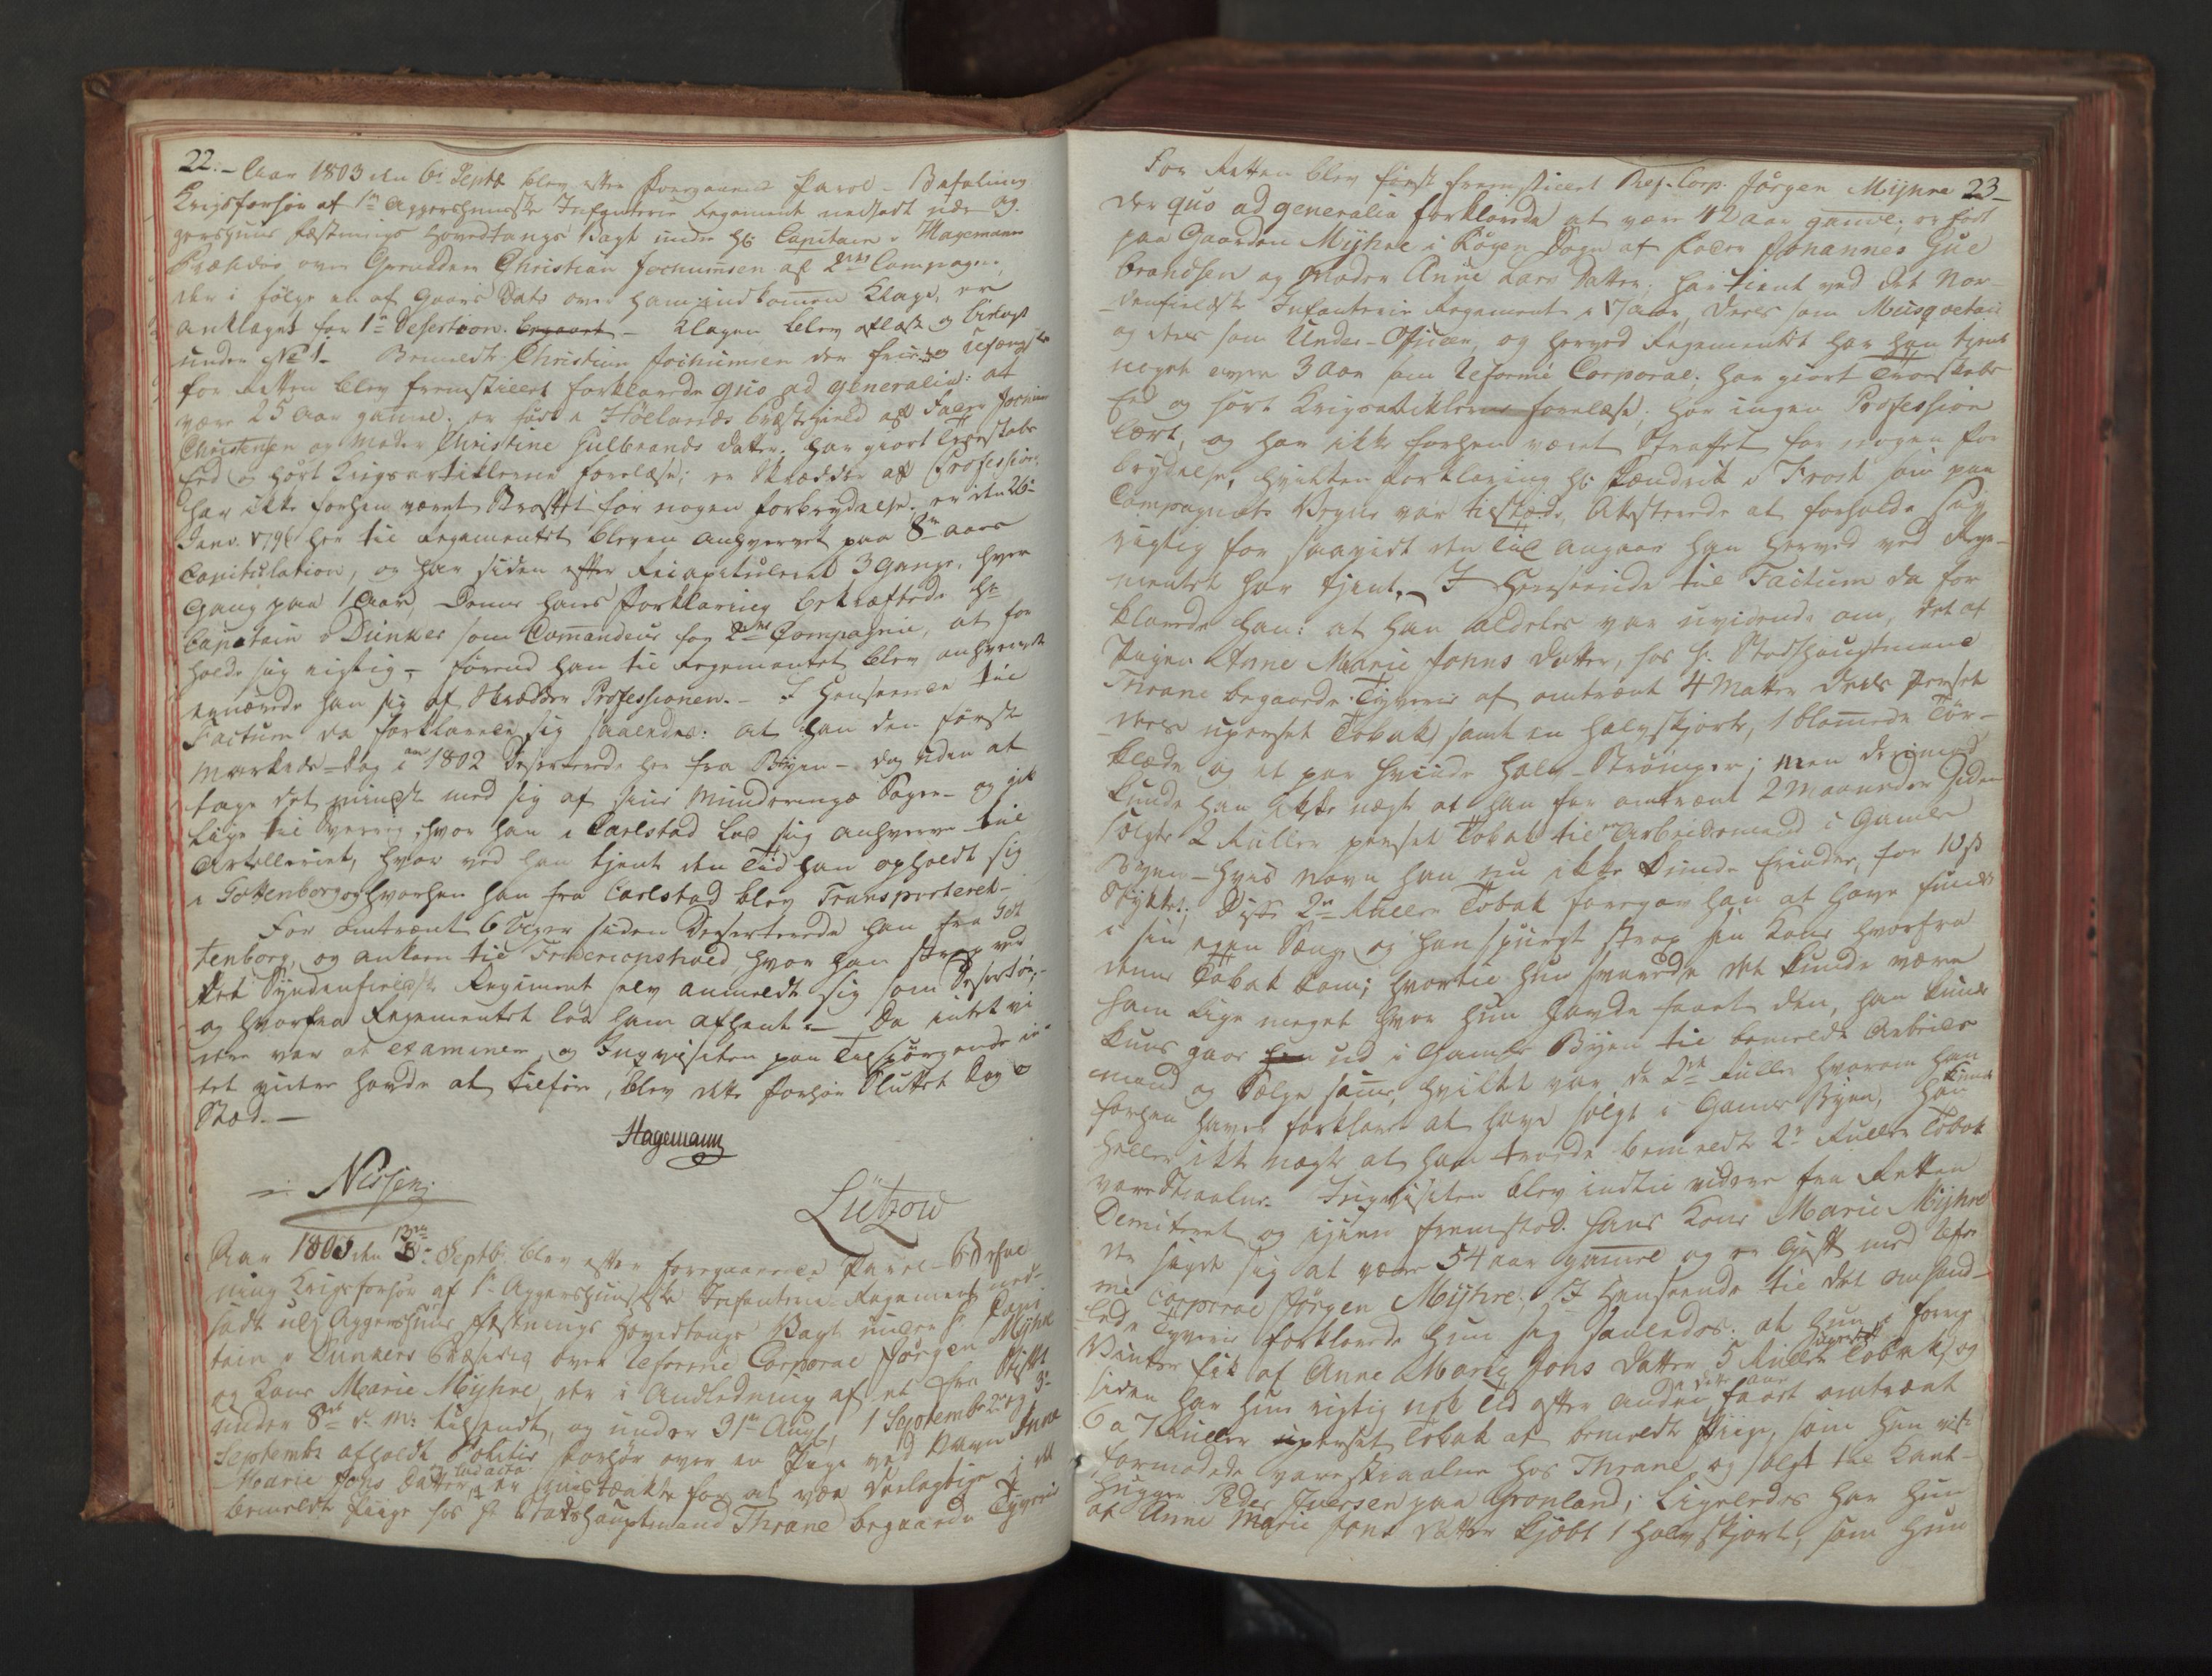 22.- Aar 1803 den 6te Septbr blev efter foregaaend Parol-Befaling
Krigsforhør af 1ste Aggershuusske Infanterie Regiment nedsadt paa Ag-
gershuus Fæstnings Hovedtangs Vagt under Hr. Capitain v Hagemanns
Præsidio over Grenadeer Christian Jochumsen af 2det Compagnie,
der i følge en af Gaars Dato over ham indkommen Klage, er
anklaget for 1ste Desertion. begaaet - Klagen blev oplæst og bielagt
under No 1. Bemeldte Christian Jochumsen der frie og ufængslet
for Retten blev fremstillet forklarede quo ad generalia: at
være 25 Aar gammel; er født i Høelands Præstegield af Fader Jochum
Christensen og Moder Christine Gulbrands Datter; har giort Troeskabs
Eed og hørt Krigsartiklerne forelæse; er Skrædder af Profession,
har ikke forhen været Straffet for nogen Forbrydelse; er den 26de
Janv. 1796 her til Regimentet bleven anhvervet paa 8te Aars
Capitulation, og har siden efter Recapituleret 3 Gange, hver
Gang paa 1 Aar, Denne hans Forklaring bekræftede Hr.
Capitain v Dunker som Commandeur for 2det Compagnie, at for
holde sig rigtig - førend han til Regimentet blev anhvervet
ernærede han sig af Skrædder Professionen. - I Henseende til
Factum da forklarede sig saaledes: at han den første
Markeds-Dag i am 1802 Deserterede her fra Byen - dog uden at
tage det mindste med sig af sine Munderings Sager - og gik
lige til Sverrig, hvor han i Carlstad lod sig anhverve til
Artilleriet, hvor ved han tjente den Tid han opholdt sig
i Gottenborg og hvorhen han fra Carlstad blev Transporteret -
For omtrent 6 Uger siden Deserterede han fra Got
tenborg, og ankom til Fredericshald, hvor han strax ved
det Syndenfieldske Regiment selv anmeldte sig som Desertør,
og hvorfra Regimentet lod ham afhente. - Da intet vi
dere var at examinere, og Inqvisiten paa Tilspørgende in
tet videre havde at tilføre, blev dette Forhør Sluttet Dag &
Stæd. -
Hagemann
Nissen
Lützow
Aar 1803 den 13de Septbr. blev efter foregaaende Parol-Befal
ning Krigsforhør af 1ste Aggershuusske Infanterie-Regiment ned-
sadt ved Aggershuus Fæstnings Hovedtangs Vagt under Hr. Capi
tain v Dunkers Præsidio over Reformé Corporal Jørgen Myhre
og Kone Marie Myhre, der i Anledning af et fra Stiftet
under 8de d. M: tilsendt, og under 31te Augs, 1 Septembr 2de og 3de
Septembr afholdt Politie Forhør over en Pige ved Navn Anne
Marie Jons Datter er mistænkte for at være deelagtige i det
bemeldte Piige hos Hr Stadshauptmand Thrane begaaede Tyverie
23-
For Retten blev først fremstillet Ref. Corp. Jørgen Myhre
der quo ad generalia forklarede at være 42 Aar gammel; er født
paa Gaarden Myhre i Røgen Sogn af Fader Johannes Gul
brandsen og Moder Anne Lars Datter; har tient ved det Nor-
denfieldske Infanterie Regiment i 17 Aar, deels som Musqvetair
og deels som Under-Officer, og herved Regimentet har han tjent
noget over 3 Aar som Reformé Corporal; har giort Troeskabs
Eed og hørt Krigsartiklerne forelæse; har ingen Profession
lært, og har ikke forhen været Straffet for nogen For
brydelse, hvilken Forklaring Hr. Fændrik v Frost som paa
Compagniets Vegne var tilstæde, Attesterede at forholde sig
rigtig for saavidt den Tid angaar han herved ved Rege-
mentet har tjent. - I Henseende til Factum da for
klarede han: at han aldeles var uvidende om, det af
Pigen Anne Marie Johns Datter, hos Hr. Stadshauptmand
Thrane begaaede Tyverie af omtrent 4 Matter deels Perset
deels uperset Tobak, samt en Halvskjorte, 1 blommede Tør-
klæde og et par hviide Halv-Strømper; men derimod
kunde han ikke nægte at han for omtrent 2 Maaneder siden
solgte 2 Ruller perset Tobak til en Arbeidsmand i Gamle
Byen - hvis Navn han nu ikke kunde erindre, for 10 ß
Stykket; Disse 2de Ruller Tobak foregav han at have funden
i sin egen Seng og han spurgte strax sin Kone hvorfra
denne Tobak kom; hvortil hun svarede det kunde være
ham lige meget hvor hun havde faaet den, han kunde
kuns gaae ud i Gamle Byen til bemeldte Arbeids
mand og Sælge samme, hvilket var de 2de Ruller hvorom han
forhen haver forklaret at have solgt i Gamle Byen; han kunde
heller ikke nægte at han troede bemeldte 2de Ruller Tobak
vare stiaalne. Inqvisiten blev indtil videre fra Retten
Demitteret og igien fremstod hans Kone Marie Myhre
der sagde sig at være 54 Aar gammel og er Gift med Refor
mé Corporal Jørgen Myhre; I Henseende til det omhand-
lede Tyverie forklarede hun sig saaledes: at hun i forrige
Vinter fik af Anne Marie Jons Datter 5 Ruller uperset Tobak, og
siden har hun rigtig nok Tid efter anden i dette Aar faaet omtrent
6 a 7 Ruller uperset Tobak af bemeldte Piige, som hun vist
formodede vare stiaalne hos Thrane, og solgt til Kant-
hugger Peder Iversen paa Grønland; Ligeledes har hun
af Anne Marie Jons Datter kjøbt 1 Halvskjorte, som hun